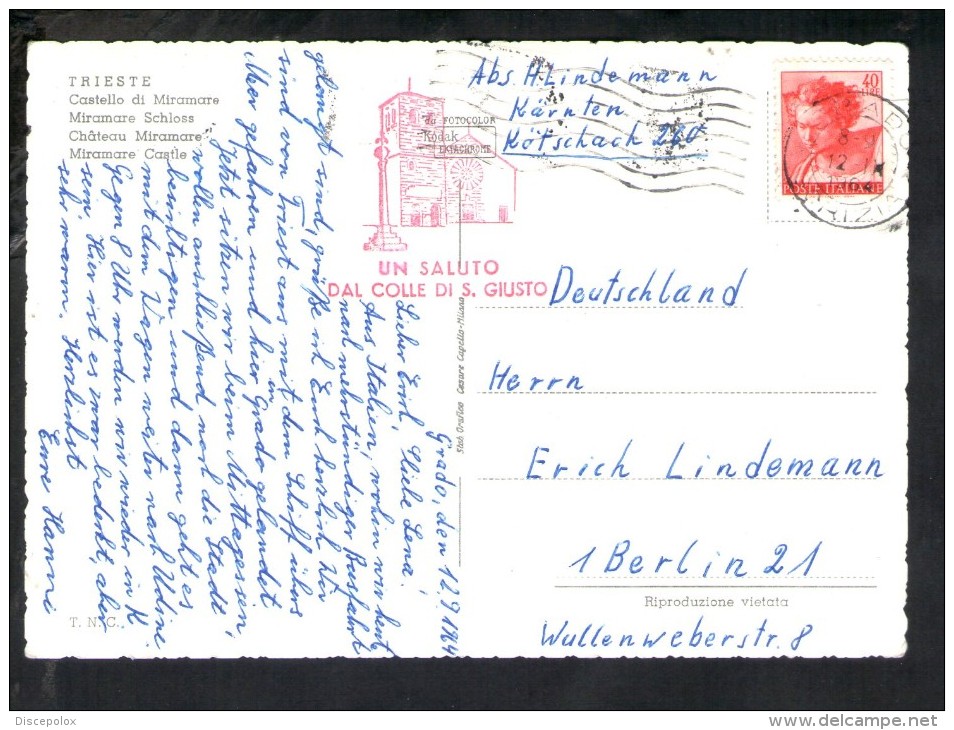 TRIESTE
Castello di Miramare
Miramare Schloss
Château Miramare
Miramare Castle
Abs. H. Lindemann
Kärnten
Kötschach 260
da FOTOCOLOR
Kodak
EKTACHROME
40
LIRE
POSTE ITALIANE
UN SALUTO
DAL COLLE DI S. GIUSTO
Grado, den 12.9.1964
Lieber Erich, Liebe Lena!
Aus Italien, wohin wir heute
nach mehrstündiger Busfahrt
gelangt sind, grüße ich Euch herzlich. Wir
sind von Triest aus mit dem Schiff übers
Meer gefahren und hier in Grado gelandet.
Jetzt sitzen wir beim Mittagessen,
wollen anschließend noch die Stadt
besichtigen und dann geht es
mit dem Wagen weiter nach Udine.
Gegen 8 Uhr werden wir wieder in K.
sein. Hier ist es zwar bedeckt, aber
sehr warm. Herzlichst
Eure Hanni
Stab. Grafico Cesare Capello - Milano
Deutschland
Herrn
Erich Lindemann
1 Berlin 21
Riproduzione vietata
Wullenweberstr. 8
T. N. C.
Discepolox
delcampe.net